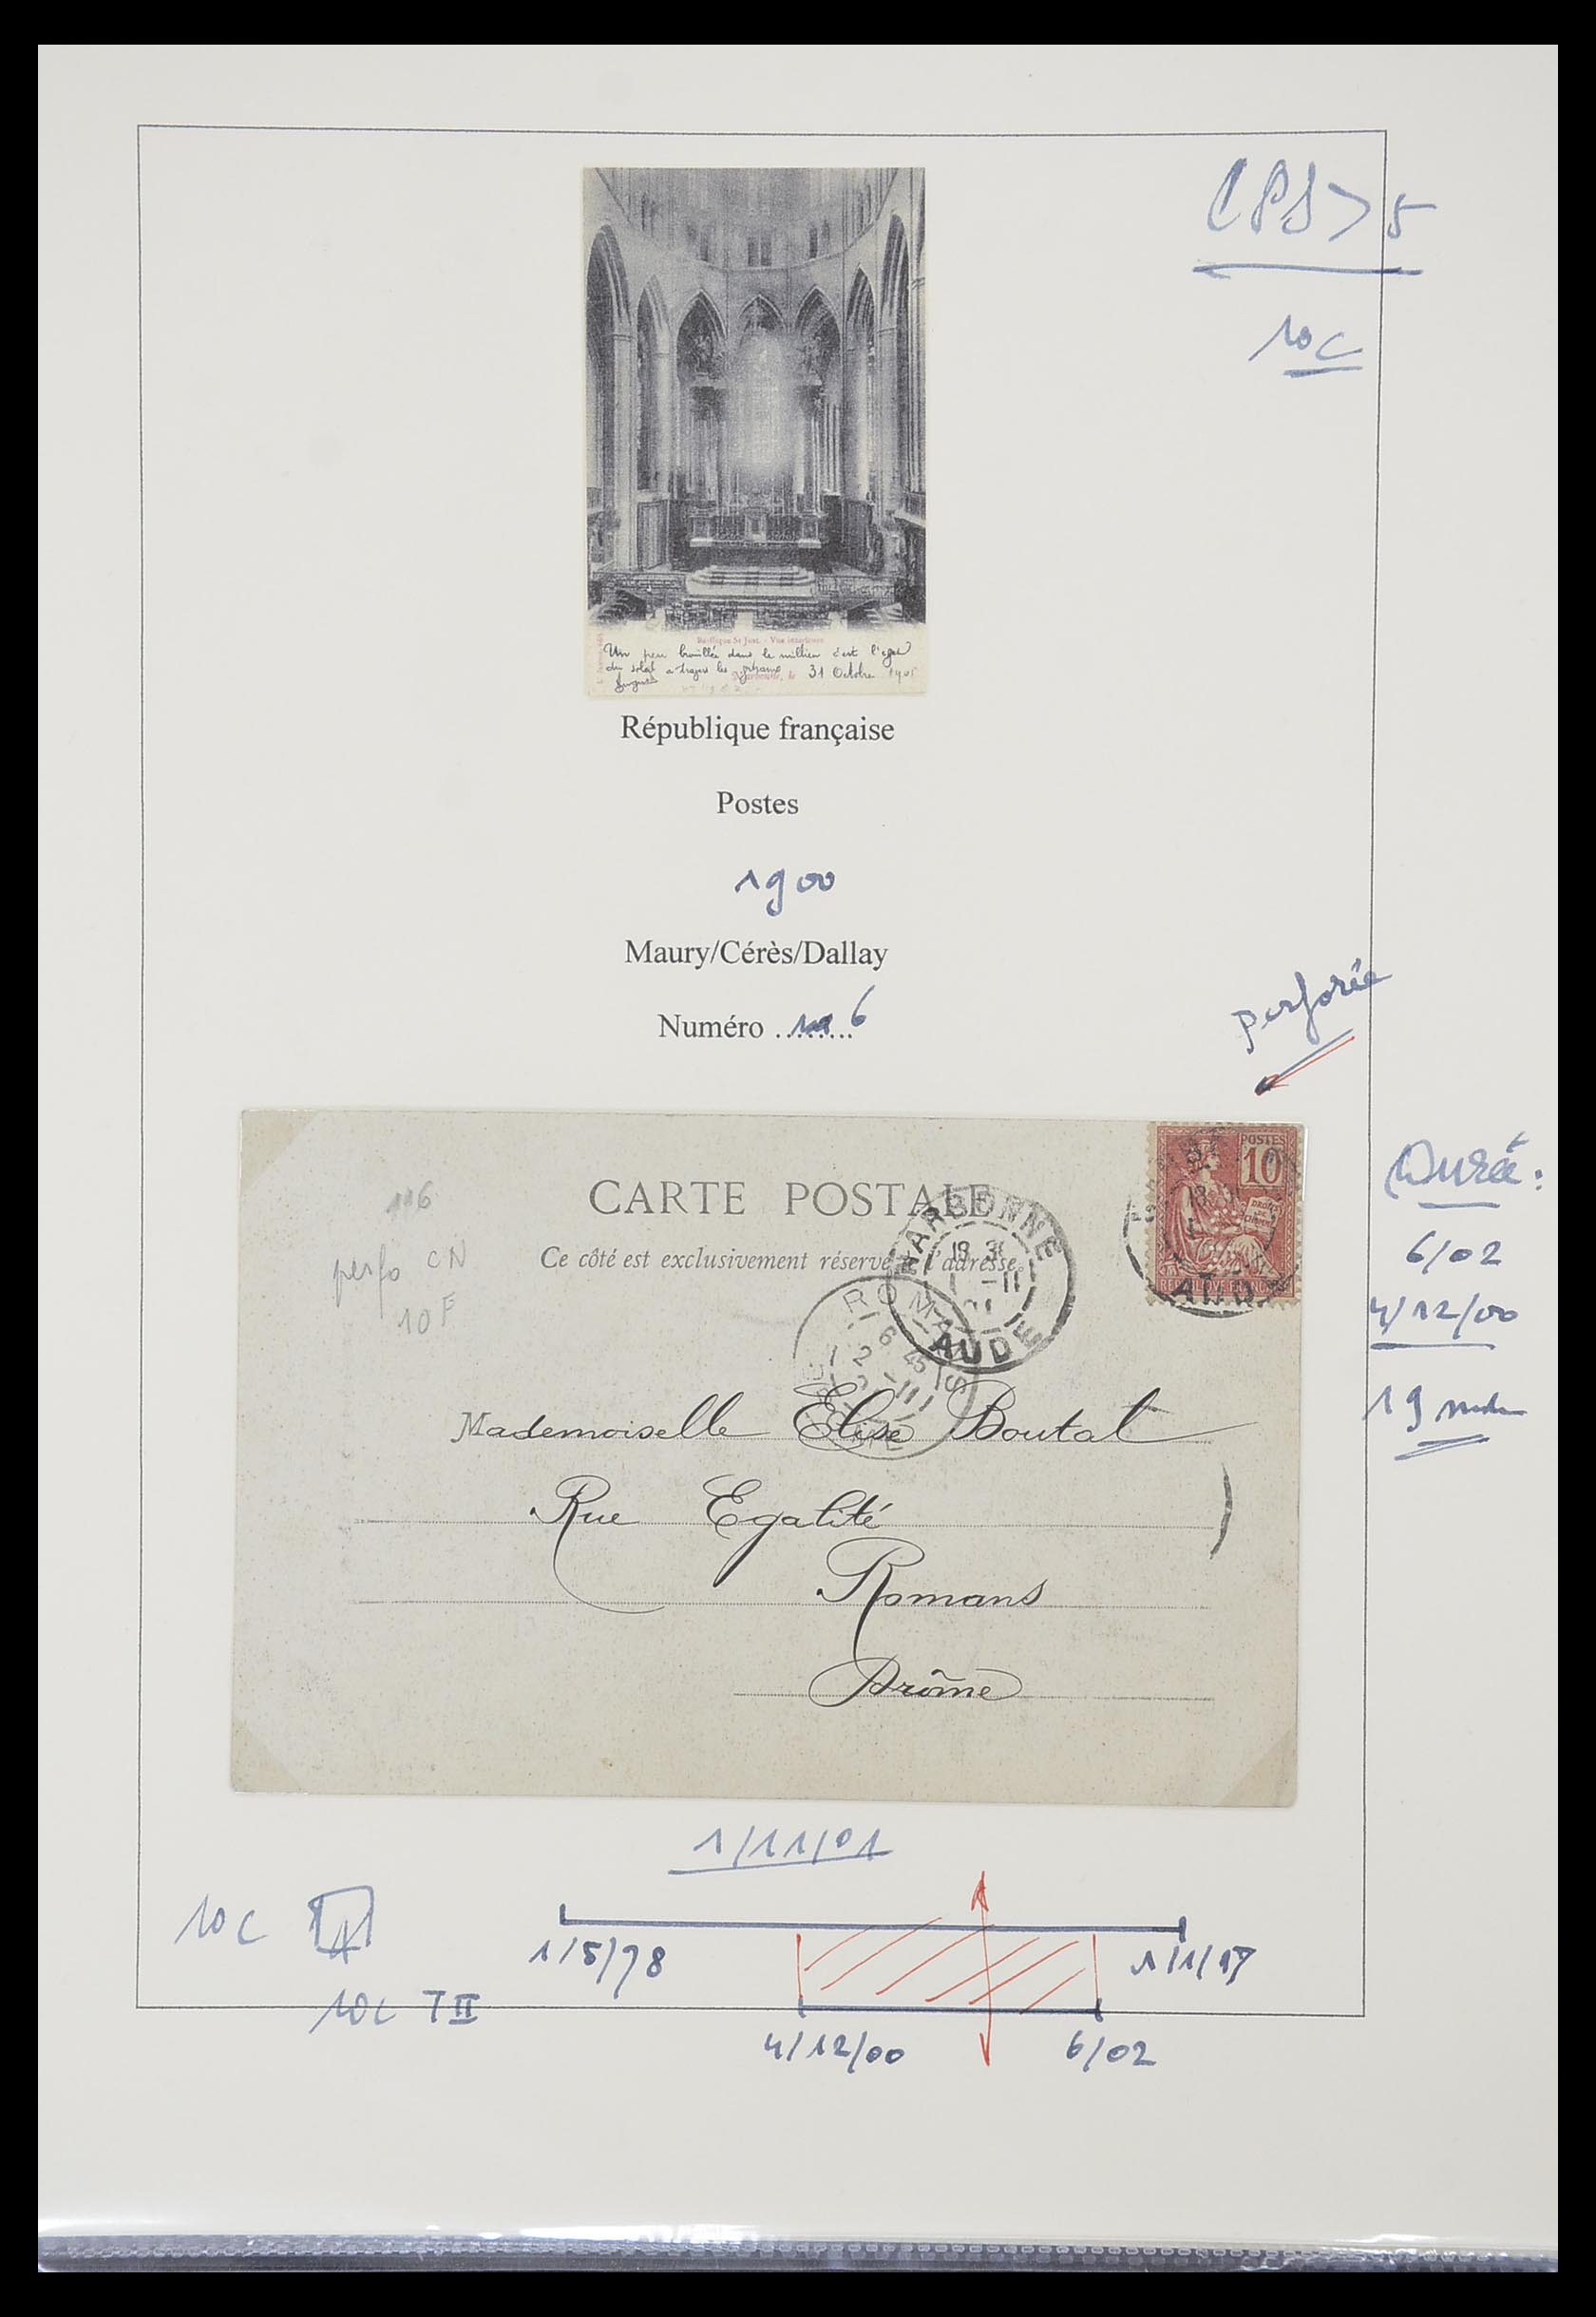 CPS > 5
10c
Basilique St Just. - Vue intérieure
Un peu brouillée dans le millieu c'est l'
du soleil a traves les
Narbonne, le 31 Octobre 1901
République française
Postes
1900
Maury/Cérès/Dallay
Numéro ........ 116
perforée
CARTE POSTALE
Ce côté est exclusivement réservé à l'adresse.
116
perfo CN
10F
POSTES
10
DROITS
DE
L'HOMME
REPUBLIQUE FRANCAISE
AUDE
NARBONNE
18 3
1 -11
01
AUDE
ROMANS
6 45
2 -11
Mademoiselle Elise Boutal
Rue Egalité
Romans
Drôme
Durée :
6/02
4/12/00
19
1/11/01
10c
1/5/78
1/1/17
10c TII
4/12/00
6/02